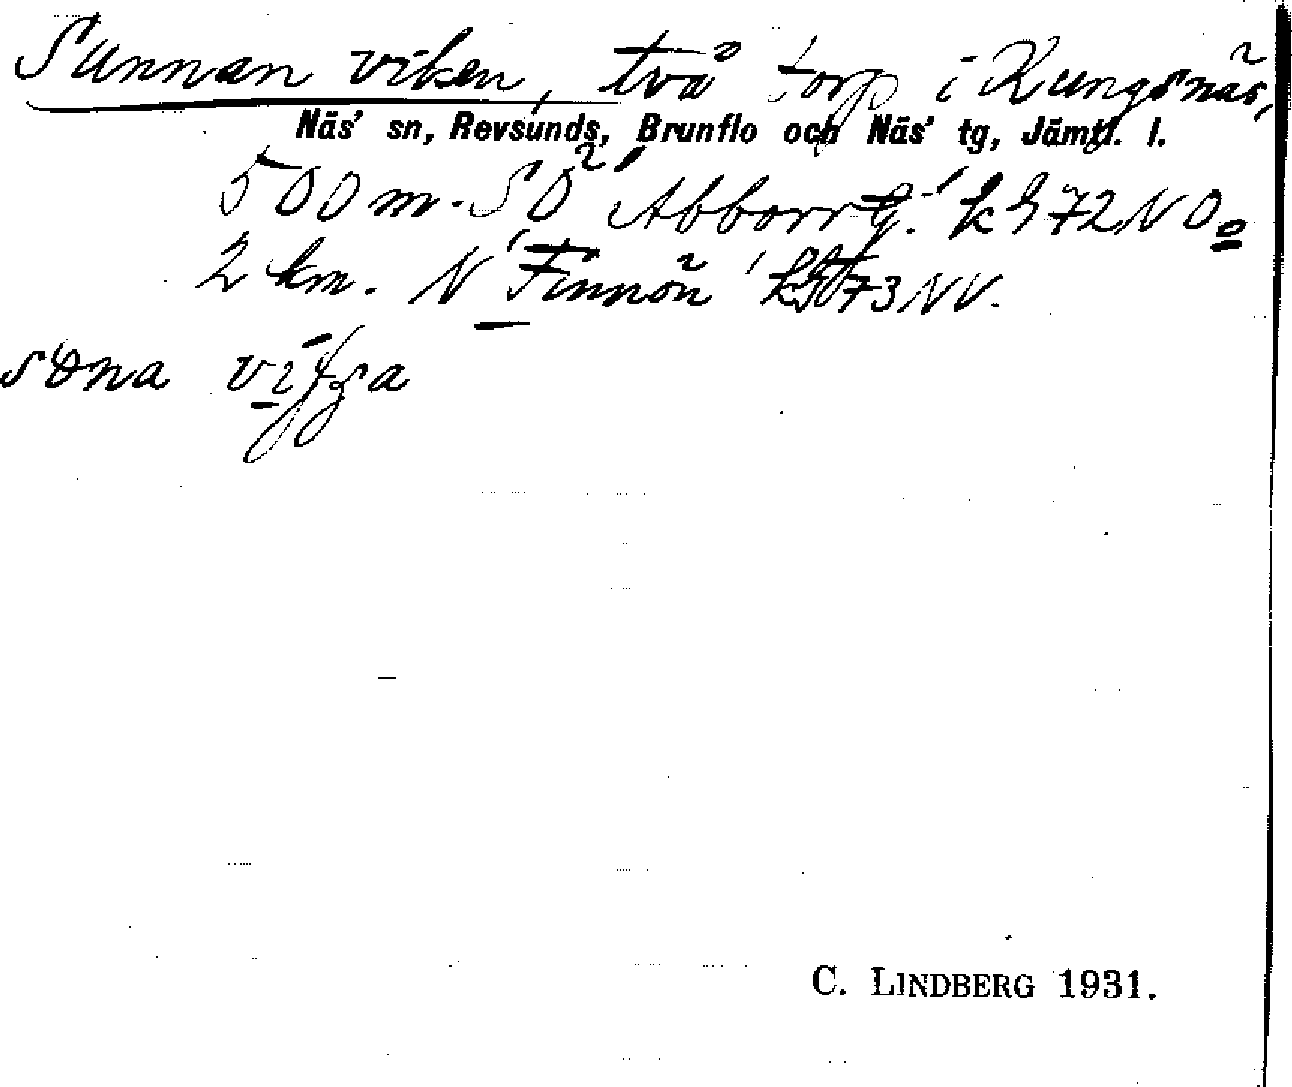 Sunnan viken, två torp i Kungsnäs,
Näs' sn, Revsunds, Brunflo och Näs' tg, Jämtl. l.
500 m. SO 'Abborrtj.' kbl 72 NO
2 km. N 'Finnön' kbl 73 NV.
søna
C. LINDBERG 1931.